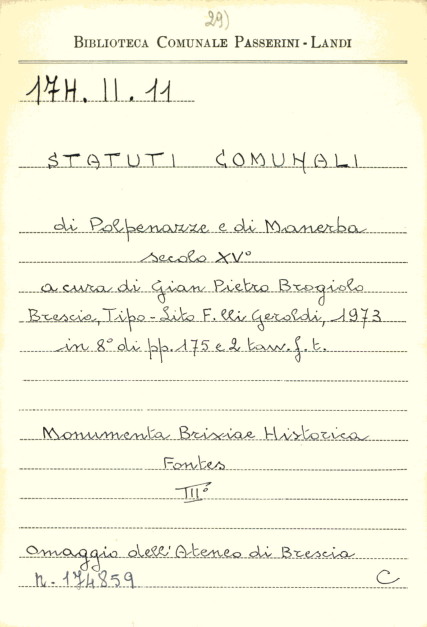 29)
BIBLIOTECA COMUNALE PASSERINI-LANDI
17H. II. 11
STATUTI COMUNALI
di Polpenazze e di Manerba
secolo XV°
a cura di Gian Pietro Brogiolo
Brescia, Tipo-Lito F.lli Geroldi, 1973
in 8° di pp. 175 e 2 tavv. f. t.
Monumenta Brixiae Historica
Fontes
III°
Omaggio dell'Ateneo di Brescia
n. 174859 C